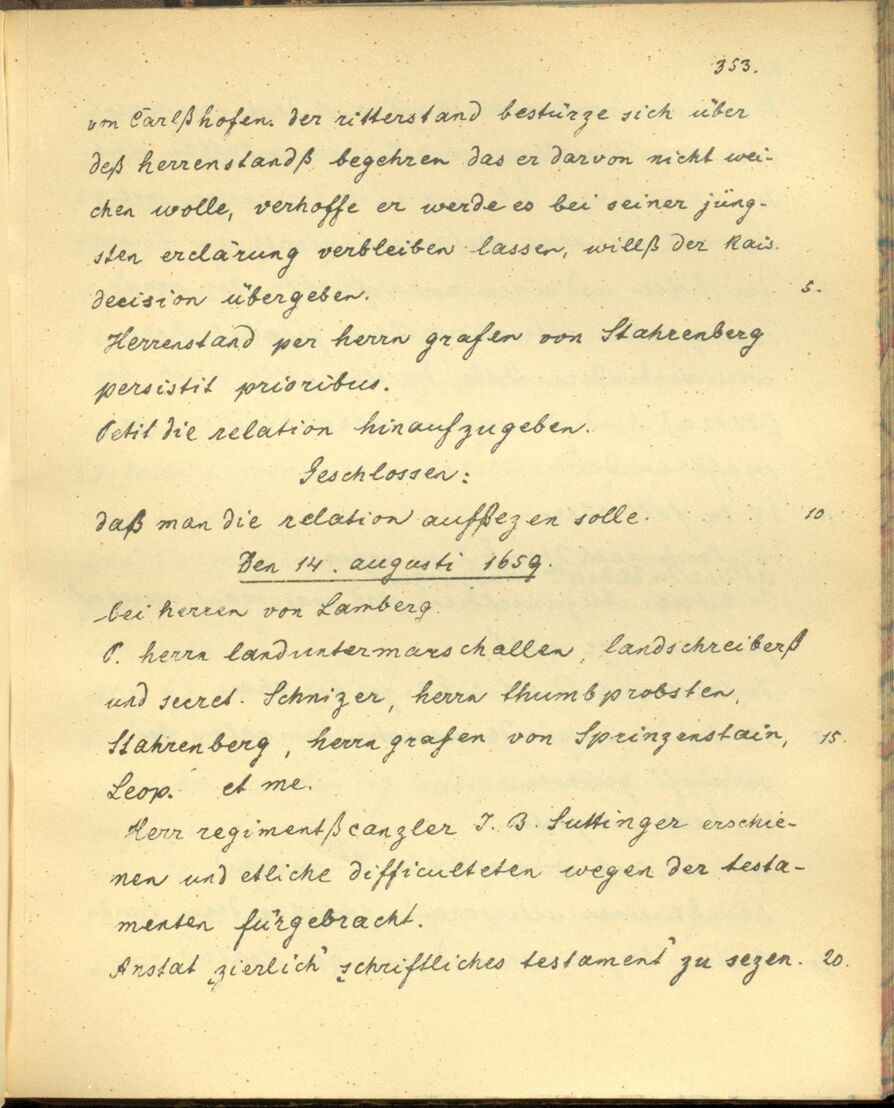 353.
von Carlßhofen. der ritterstand bestürze sich über
deß herrenstandß begehren das er darvon nicht wei-
chen wolle, verhoffe er werde es bei seiner jüng-
sten erclärung verbleiben lassen, willß der Kais.
decision übergeben. 5.
Herrenstand per herrn grafen von Stahrenberg
persistit prioribus.
Petit die relation hinaufzugeben.
Geschlossen:
daß man die relation aufsezen solle. 10
Den 14. augusti 1659.
bei herren von Lamberg.
P. herrn landuntermarschallen, landschreiberß
und secret. Schnizer, herrn thumbprobsten,
Stahrenberg, herrn grafen von Sprinzenstain, 15.
Leop. et me.
Herr regimentßcanzler J. B. Suttinger erschie-
nen und etliche difficulteten wegen der testa-
menten fürgebracht.
Anstat „zierlich“ „schriftliches testament“ zu sezen. 20.